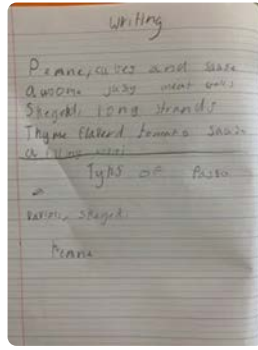 Writing
Penne, cubes and sause
awsome jusy meat balls
Skegeti long strands
Thyme flaverd tomato sause
a
Typs of Passa
Skegeti
Penne